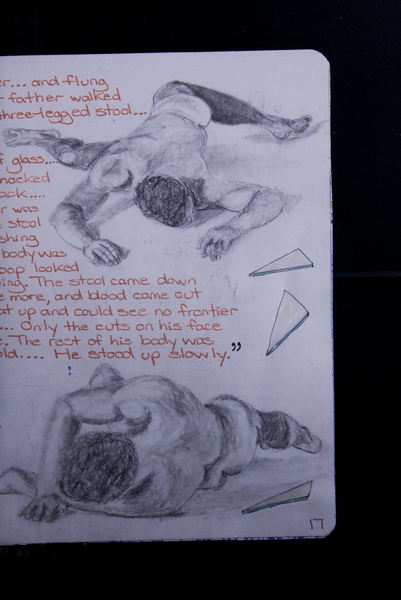 er... and flung
father walked
three-legged stool...
f glass...
nocked
ack....
r was
stool
shing
body was
oop looked
ing. The stool came down
e more, and blood came out
ot up and could see no frontier
... Only the cuts on his face
e. The rest of his body was
old.... He stood up slowly.”
17